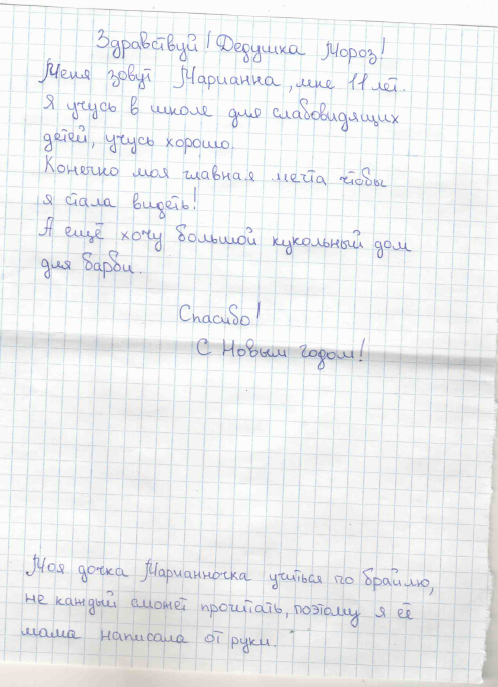 Здравствуй! Дедушка Мороз!
Меня зовут Марианна, мне 11 лет.
Я учусь в школе для слабовидящих
детей, учусь хорошо.
Конечно моя главная мечта, чтобы
я стала видеть!
А ещё хочу большой кукольный дом
для барби.
Спасибо!
С Новым годом!
Моя дочка Марианночка учиться по брайлю,
не каждый сможет прочитать, поэтому я её
мама написала от руки.